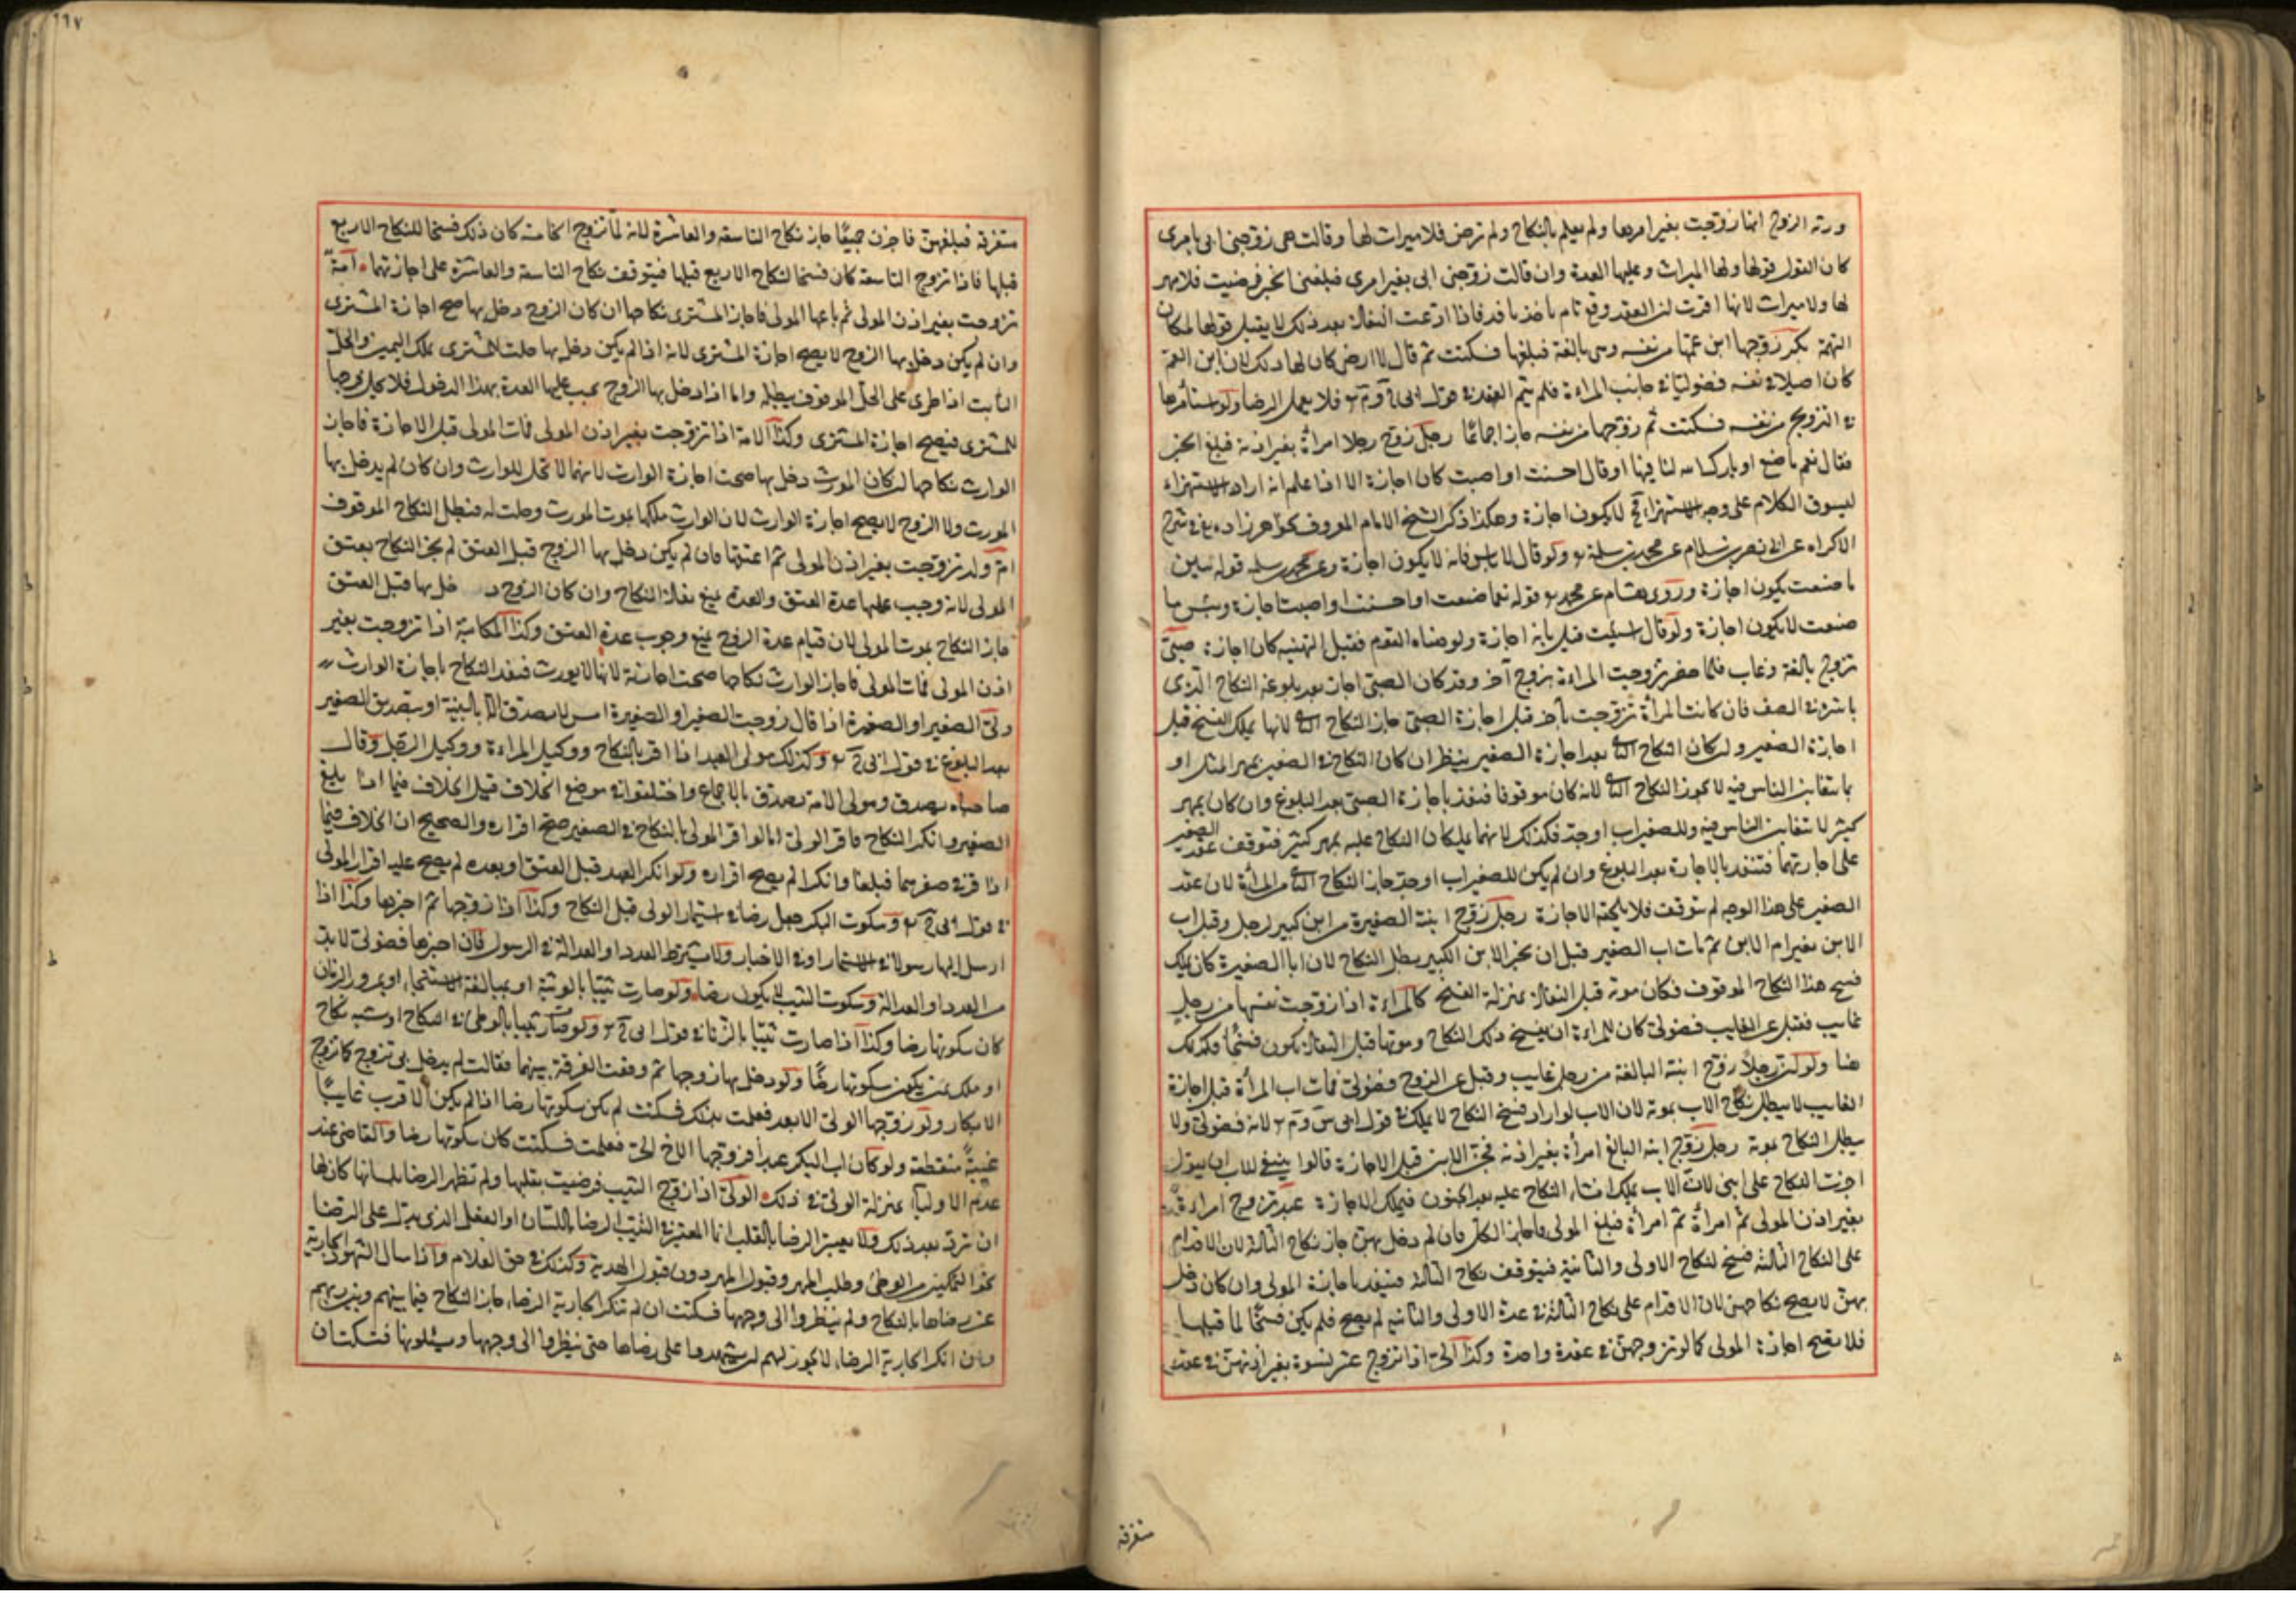 ورثة الزوج انما زوجت بغير امرها ولم يعلم بالنكاح ولم ترض فلا ميراث لها وقالت هى زوجنى ابى بامرى
كان القول قولها ولها الميراث وعليها العدة وان قالت زوجنى ابى بغير امرى فبلغنى الخبر فرضيت فلا مهر
لها ولا ميراث لانها اقرت ان العقد وقع تام نافذ فاذا ادعت النفاذ بعد ذلك لا يقبل قولها لمكان
التهمة بكر زوجها ابن عمها من نفسه وهى بالغة فبلغها فسكتت ثم قال لا ارضى كان لها ذلك لان ابن العم
كان اصيلا فى نفسه فضوليا فى جانب المراة فلم يتم العقد فى قول ابى ح وم فلا يعمل الرضا ولو استأمرها
فى التزويج من نفسه فسكتت ثم زوجها من نفسه جاز اجماعًا رجل زوج رجلا امرأة بغير اذنه فبلغ الخبر
فقال نعم ما صنع او بارك الله لنا فيها او قال احسنت او اصبت كان اجازة الا اذا علم انه اراد الاستهزاء
ليسوق الكلام على وجه الاستهزاء لا يكون اجازة وهكذا ذكر الشيخ الامام المعروف بخواهر زاده فى شرح
الاكراه عن ابى نصر بن سلام عن محمد بن سلمة ولو قال لا باس فانه لا يكون اجازة وعن محمد بن سلمه قوله بئس
ما صنعت يكون اجازة وروى هشام عن محمد قوله نعما صنعت او احسنت او اصبت اجازة وبئس ما
صنعت لا يكون اجازة ولو قال اسئت قيل بانه اجازة ولو هناه القوم فقبل التهنية كان اجازة صبى
تزوج بالغة وغاب فلما حضر تزوجت المراة بزوج آخر وقد كان الصبى اجاز بعد بلوغه النكاح الذى
باشره فى الصغر فان كانت المرأة تزوجت بآخر قبل اجازة الصبى جاز النكاح الثانى لانها يملك الفسخ قبل
اجازة الصغير وان كان النكاح الثانى بعد اجازة الصغير ينظر ان كان النكاح فى الصغر بمهر المثل او
بما يتغابن الناس فيه لا يجوز النكاح الثانى لانه كان موقوفا فنفذ باجازة الصبى بعد البلوغ وان كان بمهر
كثير لا يتغابن الناس فيه وللصغير اب او جد فكذلك لانهما يملكان النكاح عليه بمهر كثير فتوقف عقد الصغير
على اجازتهما فتنفذ بالاجازة بعد البلوغ وان لم يكن للصغير اب او جد جاز النكاح الثانى من المرأة لان عقد
الصغير على هذا الوجه لم يتوقف فلا يلحقه الاجازة رجل زوج ابنته الصغيرة من ابن كبير لرجل وقبل اب
الابن بغير امر الابن ثم مات اب الصغير قبل ان يخبر الابن الكبير يبطل النكاح لان ابا الصغيرة كان يملك
فسخ هذا النكاح الموقوف فكان موته قبل النفاذ بمنزلة الفسخ كالمراة اذا زوجت نفسها من رجل
غايب فقبل عن الغايب فضولى كان للمراة ان يفسخ ذلك النكاح وموتها قبل النفاذ يكون فسخًا فكذلك
هنا ولو ان رجلا زوج ابنته البالغة من رجل غايب وقبل عن الزوج فضولى فمات اب المرأة قبل اجازة
الغايب لا يبطل نكاح الاب بموته لان الاب لو اراد فسخ النكاح لا يملك فى قول ابى س وم لانه فضولى ولا
يبطل النكاح بموته رجل زوج ابنه البالغ امرأة بغير اذنه فجن الابن قبل الاجازة قالوا ينبغى للاب ان يقول
اجزت النكاح على ابنى لان الاب يملك انشاء النكاح عليه بعد الجنون فيملك الاجازة عبد تزوج امراة
بغير اذن المولى ثم امرأة ثم امرأة فبلغ المولى فاجاز الكل فان لم دخل بهن جاز نكاح الثالثة لان الاقدام
على النكاح الثالثه فسخ لنكاح الاولى والثانية فيتوقف نكاح الثالثة فينفذ باجازة المولى وان كان دخل
بهن لا يصح نكاحهن لان الاقدام على نكاح الثالثة فى عدة الاولى والثانية لم يصح فلم يكن فسخًا لما قبلها
فلا يصح اجازة المولى كما لو تزوجهن فى عقدة واحدة وكذا الحر اذا تزوج عشر نسوة بغير اذنهن فى عقد
متفرقة
١١٧
متفرقة فبلغهن فاجزن جميعًا جاز نكاح التاسعة والعاشرة لانه لما تزوج الخامسة كان ذلك فسخا للنكاح الاربع
قبلها فاذا تزوج التاسعة كان فسخا لنكاح الاربع قبلها فيتوقف نكاح التاسعة والعاشرة على اجازتهما امة
تزوجت بغير اذن المولى ثم باعها المولى فاجاز المشترى نكاحها ان كان الزوج دخل بها صح اجازة المشترى
وان لم يكن دخل بها الزوج لا يصح اجازة المشترى لانه اذا لم يكن دخل بها حلت للمشترى بملك اليمين والحل
الثابت اذا طرى على الحل الموقوف يبطله واما اذا دخل بها الزوج يجب عليها العدة بهذا الدخول فلا يحل فرجها
للمشترى فيصح اجازة المشترى وكذا الامة اذا تزوجت بغير اذن المولى فمات المولى قبل الاجازة فاجاز
الوارث نكاحها ان كان المورث دخل بها صحت اجازة الوارث لانهما لا تحل للوارث وان كان لم يدخل بها
المورث ولا الزوج لا يصح اجازة الوارث لان الوارث ملكها بموت المورث وحلت له فبطل النكاح الموقوف
ام ولد تزوجت بغير اذن المولى ثم اعتقها فان لم يكن دخل بها الزوج قبل العتق لم يجز النكاح بعتق
المولى لانه وجب عليها عدة العتق والعدة تمنع نفاذ النكاح وان كان الزوج دخل بها قبل العتق
جاز النكاح بموت المولى لان قيام عدة الزوج يمنع وجوب عدة العتق وكذا المكاتبة اذا تزوجت بغير
اذن المولى فمات المولى فاجاز الوارث نكاحها صحت اجازته لانها لا يورث فينفذ النكاح باجازة الوارث
ولى الصغير او الصغيرة اذا قال زوجت الصغير او الصغيرة امس لا يصدق الا بالبينة او بتصديق الصغير
بعد البلوغ فى قول ابى ح وكذلك مولى العبد اذا اقر بالنكاح ووكيل المراة ووكيل الرجل وقال
صاحباه يصدق ومولى الامة يصدق بالاجماع واختلفوا فى موضع الخلاف قيل الخلاف فيما اذا بلغ
الصغير وانكر النكاح فاقر الولى اما لو اقر المولى بالنكاح فى الصغير صح اقراره والصحيح ان الخلاف فيما
اذا اقر فى صغرهما فبلغا وانكرا لم يصح اقراره ولو انكر العبد قبل العتق او بعده لم يصح عليه اقرار المولى
فى قول ابى ح وسكوت البكر جعل رضا فى استيمار الولى قبل النكاح وكذا اذا زوجها ثم اخبرها وكذا اذا
ارسل اليها رسولا فى الاستيمار او فى الاخبار ولا يشترط العدد او العدالة فى الرسول فان اخبرها فضولى لا بد
من العدد او العدالة وسكوت الثيب لا يكون رضا ولو صارت ثيبًا بالوثبة او بمبالغة الاستنجاء او بمرور الزمان
كان سكوتها رضا وكذا اذا صارت ثيبًا بالزنا فى قول ابى ح ولو صارت ثيبا بالوطئ فى النكاح او شبه نكاح
او ملك يمين يكون سكوتها رضًا ولو دخل بها زوجها ثم وقعت الفرقة بينهما فقالت لم يدخل بى تزوج كما تزوج
الابكار ولو زوجها الولى الابعد فعلمت بذلك فسكتت لم يكن سكوتها رضا اذا لم يكن الاقرب غايبًا
غيبةً منقطعة ولو كان اب البكر عبدًا فزوجها الاخ الحر فعلمت فسكتت كان سكوتها رضا والقاضى عند
عدم الاولياء بمنزلة الولى فى ذلك الولى اذا زوج الثيب فرضيت بقلبها ولم تظهر الرضا بلسانها كان لها
ان ترد بعد ذلك ولا يعتبر الرضا بالقلب انما المعتبر فى الثيب الرضا باللسان او الفعل الذى يدل على الرضا
نحو التمكين من الوطئ وطلب المهر وقبول المهر دون قبول الهدية وكذلك فى حق الغلام واذا سال الشهود الجارية
عن رضاها بالنكاح ولم ينظروا الى وجهها فسكتت ان لم تنكر الجارية الرضا جاز النكاح فيما بينهم وبين ربهم
وان انكر الجارية الرضا لا يجوز لهم ان يشهدوا على رضاها حتى ينظروا الى وجهها ويسئلونها فتسكت ان